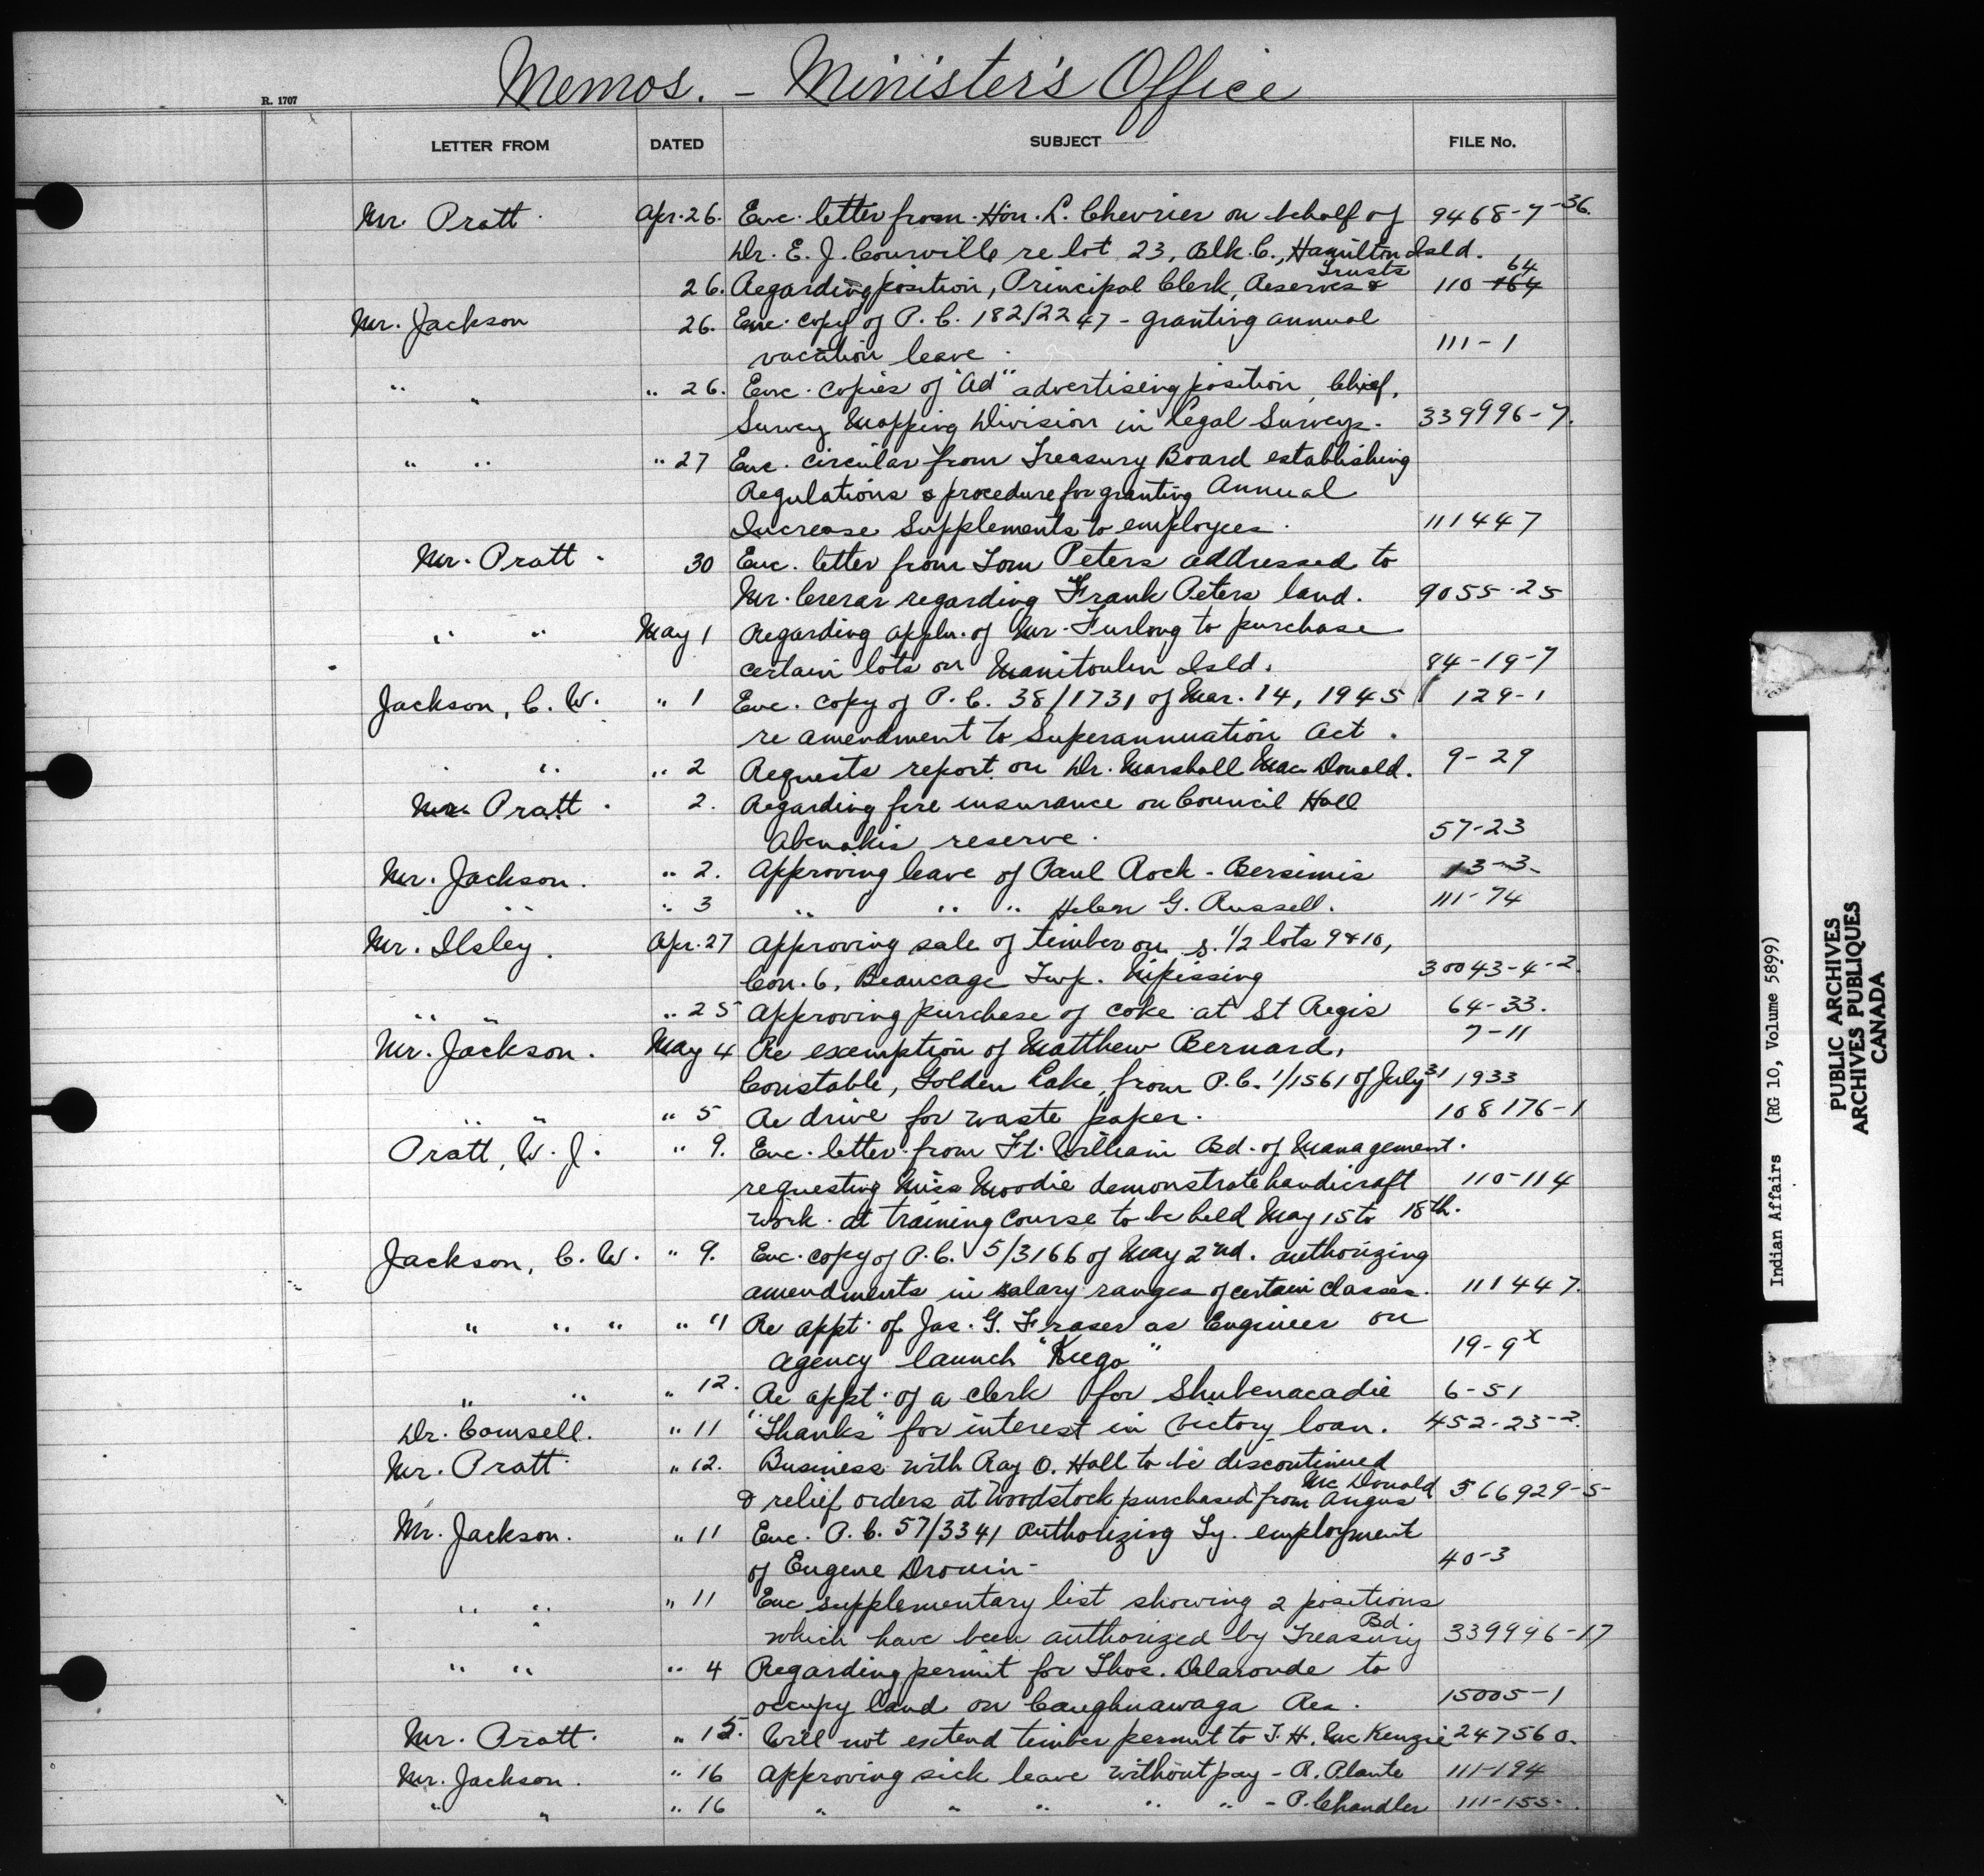 Memos. - Minister's Office
R. 1707
LETTER FROM DATED SUBJECT FILE No.
Mr. Pratt. Apr. 26. Enc. letter from Hon. L. Chevrier on behalf of 9468-7-36.
Dr. E. J. Courville re lot 23, Blk. C., Hamilton Isld.
26. Regarding position, Principal Clerk, Reserves & Trusts 110-164 64
Mr. Jackson 26. Enc. copy of P. C. 182/2247 - granting annual
vacation leave. 111-1
" " " 26. Enc. copies of "Ad" advertising position, Chief,
Survey Mapping Division in Legal Surveys. 339996-7.
" " " 27 Enc. circular from Treasury Board establishing
Regulations & procedure for granting Annual
Increase Supplements to employees. 111447
Mr. Pratt. 30 Enc. letter from Tom Peters addressed to
Mr. Crerar regarding Frank Peters land. 9055-25
" " May 1 Regarding appln. of Mr. Furlong to purchase
certain lots on Manitoulin Isld. 84-19-7
Jackson, C. W. " 1 Enc. copy of P. C. 38/1731 of Mar. 14, 1945 129-1
re amendment to Superannuation Act.
" " " 2 Requests report on Dr. Marshall MacDonald. 9-29
Mr. Pratt. 2. Regarding fire insurance on Council Hall
Abenakis reserve. 57-23
Mr. Jackson. " 2. Approving leave of Paul Rock - Bersimis 13-3-
" " " 3 " " " Helen G. Russell. 111-74
Mr. Ilsley. Apr. 27 Approving sale of timber on s. 1/2 lots 9 & 10,
Con. 6, Beaucage Twp. Nipissing 30043-4-2.
" " " 25 Approving purchase of coke at St Regis 64-33.
Mr. Jackson. May 4 Re exemption of Matthew Bernard, 7-11
Constable, Golden Lake, from P. C. 1/1561 of July 31 1933
" " " 5 Re drive for waste paper. 108176-1
Pratt, W. J. " 9. Enc. letter from Ft. William Bd. of Management.
requesting Miss Moodie demonstrate handicraft 110-114
work at training course to be held May 15 to 18th.
Jackson, C. W. " 9. Enc. copy of P. C. 5/3166 of May 2nd. authorizing
amendments in salary ranges of certain classes. 111447.
" " " " 11 Re appt. of Jas. G. Fraser as Engineer on
agency launch "Kego" 19-9x
" " " 12. Re appt. of a clerk for Shubenacadie 6-51
Dr. Camsell. " 11 "Thanks" for interest in Victory loan. 452-23-2.
Mr. Pratt " 12. Business with Ray O. Hall to be discontinued
& relief orders at Woodstock purchased from Angus McDonald 566929-5-
Mr. Jackson. " 11 Enc. P. C. 57/3341 authorizing Ty. employment
of Eugene Drouin- 40-3
" " " 11 Enc supplementary list showing 2 positions
which have been authorized by Treasury Bd. 339996-17
" " " 4 Regarding permit for Thos. Delaronde to
occupy land on Caughnawaga Res. 15005-1
Mr. Pratt. " 15. Will not extend timber permit to J. H. McKenzie 247560.
Mr. Jackson. " 16 Approving sick leave without pay - R. Plante 111-194
" " " 16 " " " " " - P. Chandler 111-155-.
Indian Affairs (RG 10, Volume 5899)
PUBLIC ARCHIVES
ARCHIVES PUBLIQUES
CANADA